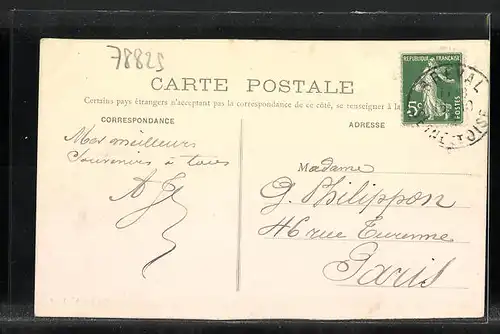 78825
CARTE POSTALE
Certains pays étrangers n'acceptant pas la correspondance de ce côté, se renseigner à la
CORRESPONDANCE
ADRESSE
RÉPUBLIQUE FRANÇAISE
5c
POSTES
Mes meilleurs
Souvenirs à tous
Madame
G. Philippon
46 rue Turenne
Paris